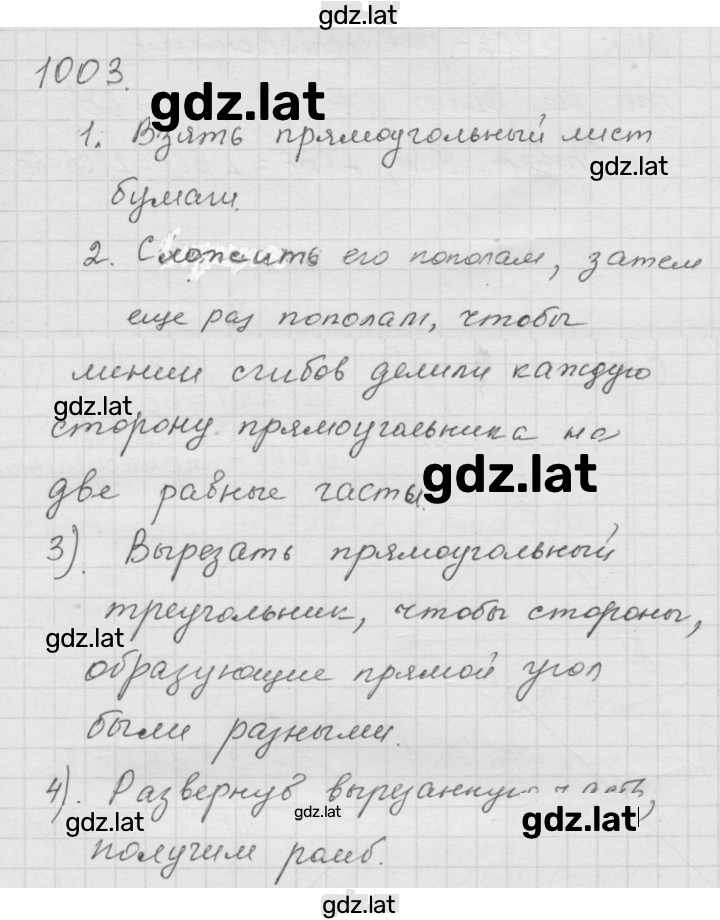 gdz.lat
1003.
gdz.lat
1. Взять прямоугольный лист
gdz.lat
бумаги.
2. Сложить его пополам, затем
еще раз пополам, чтобы
линии сгибов делили каждую
gdz.lat
сторону прямоугольника на
gdz.lat
две равные часты.
3). Вырезать прямоугольный
треугольник, чтобы стороны,
gdz.lat
образующие прямой угол
были разными.
4). Развернув вырезанную часть,
gdz.lat
gdz.lat
gdz.lat
получим ромб.
gdz.lat